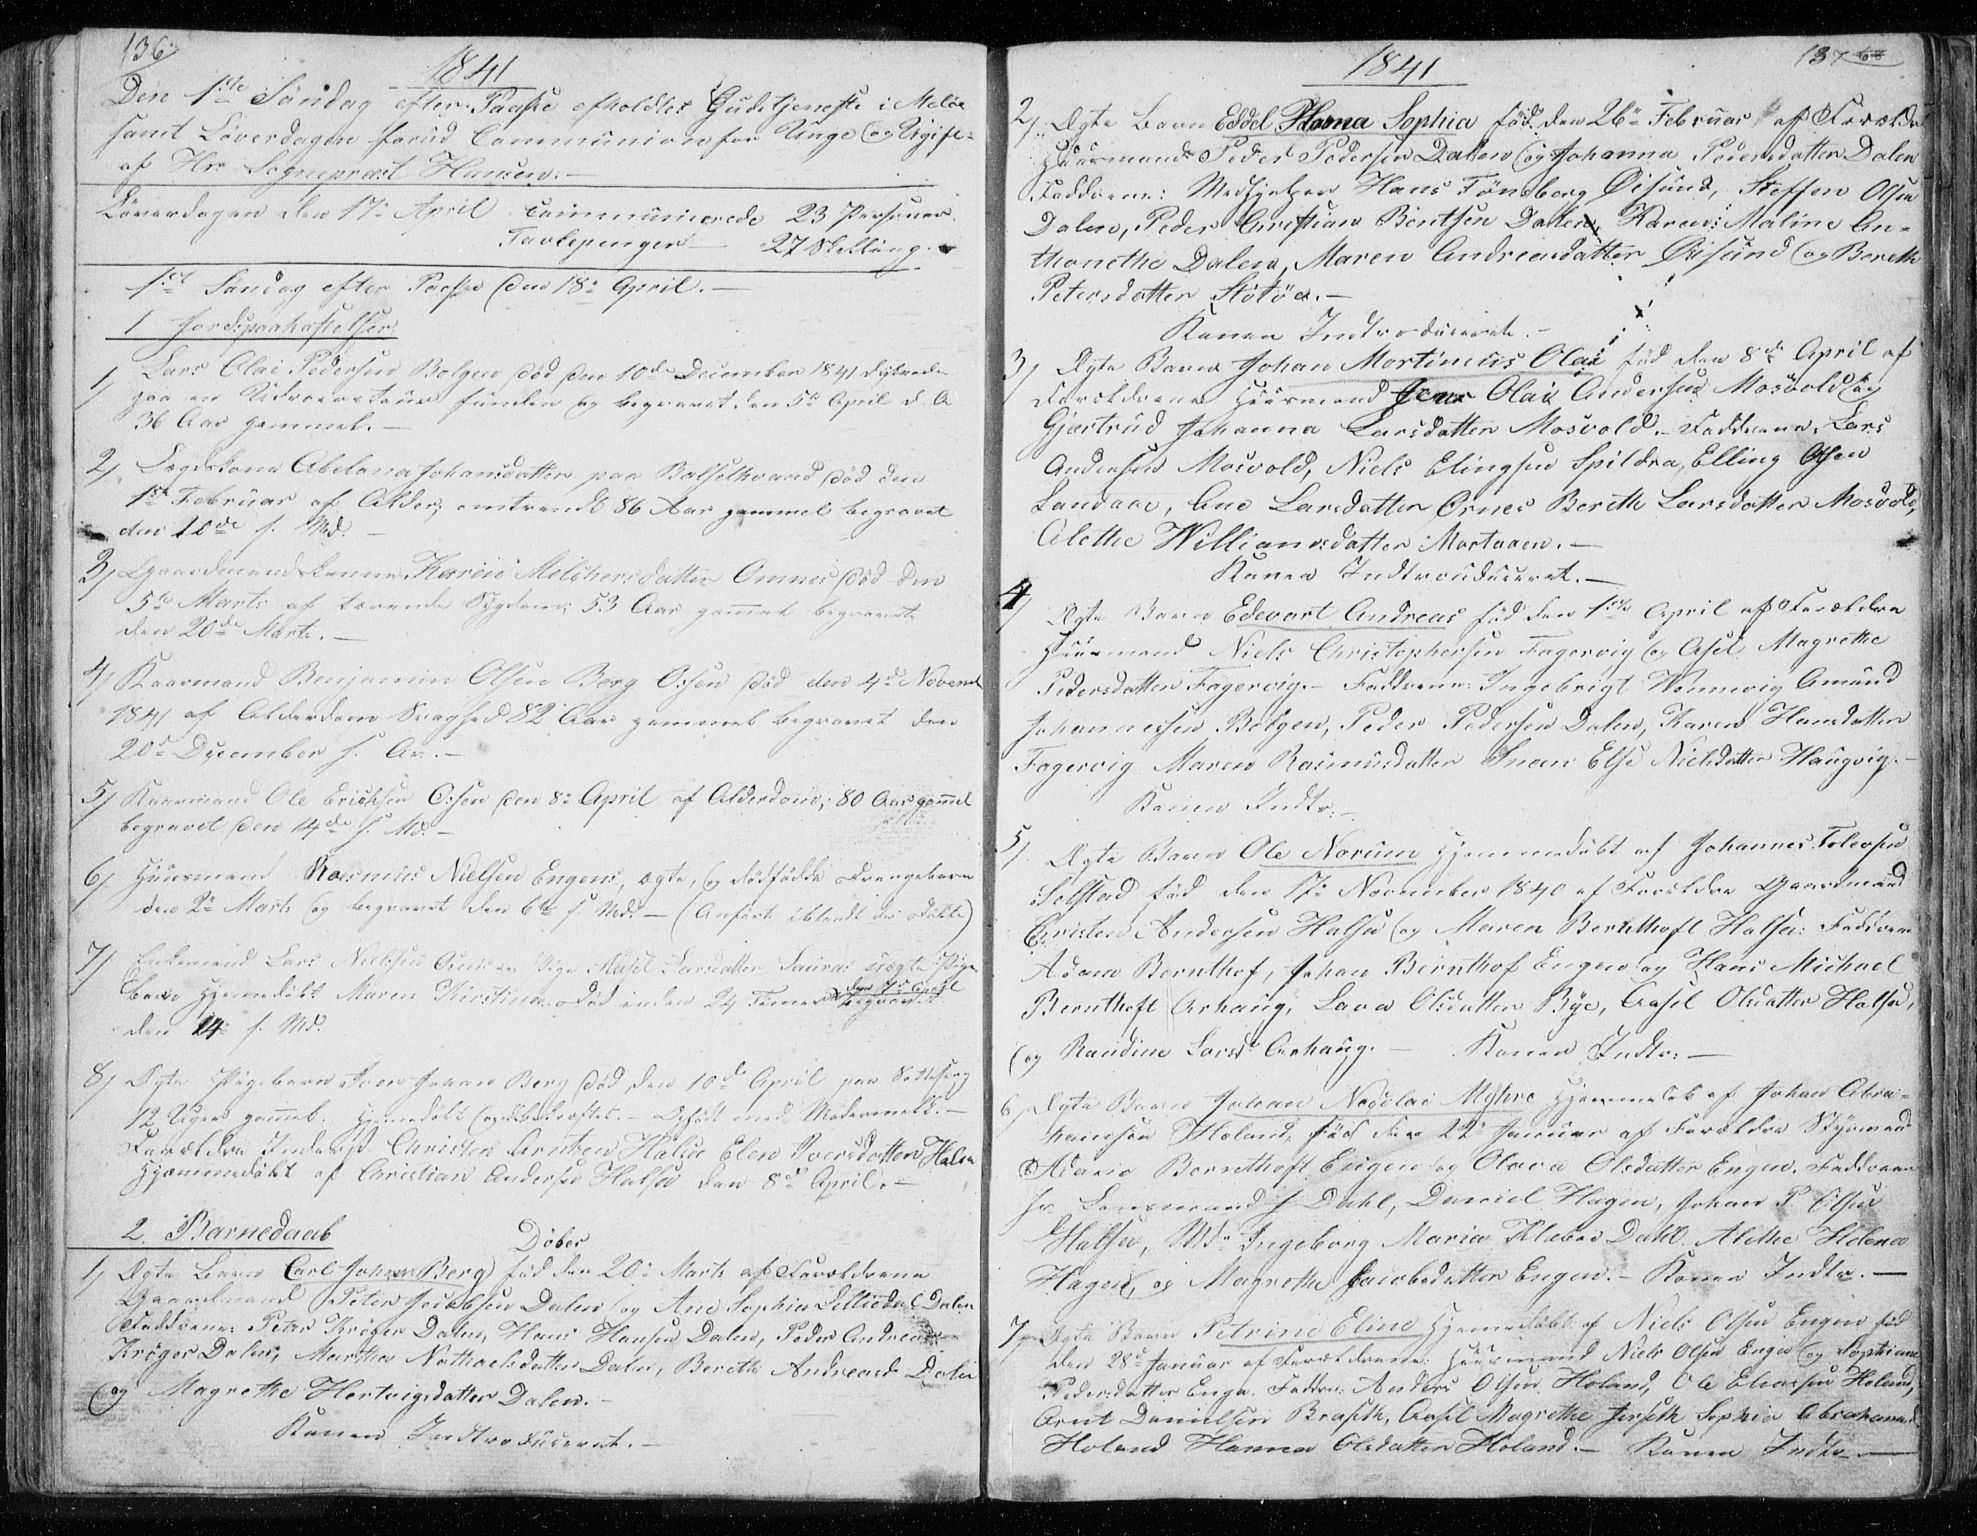 136
1841
Den 1ste Søndag efter Paaske afholdtes Gudstjeneste i Meløe
samt Løverdagen forud Communion for Unge og Ugifte
af Hr. Sognepræst Hansen.
Løverdagen den 17de April communicerede 23 Personer
Tavlepenger 27 Skilling.
1ste Søndag efter Paaske den 18de April.
1 Jordspaakastelser.
1, Lars Olai Pedersen Bolgen død den 10de December 1841
paa en funden og begravet den 5te April d. A
36 Aar gammel.
2, Abelona Johansdatter paa død den
1ste Februar af Alder, omtrendt 86 Aar gammel begravet
den 10de s. Md.
3, Gaardmandskone Karen Melchersdatter Omnes død den
5te Marts af tærende Sygdom; 53 Aar gammel begravet
den 20de Marts.
4, Kaarmand Benjamin Olsen Berg død den 4de Novemb
1841 af Alderdoms Svaghed 82 Aar gammel begravet den
20de December s. Aar.
5, Kaarmand Ole Erichsen den 8de April af Alderdom; 80 Aar gaml
begravet den 14de s. Md.
6, Huusmand Rasmus Nielsen Engens, ægte, og dødfødde Drengebarn
den 2de Marts og begravet den 6te s. Md. (Anført iblandt de Døbte)
7, Enkemand Lars Nielsen og Pige Larsdatter uægte Pige
barn Hjemmedøbt Maren Kirstina død inden 24 Timer den 7de April begravet
den 14de s. Md.
8, Ægte Pigebarn Johan Berg død den 10de April paa
12 Uger gammel. Hjemmedøbt Opfødt med Modermælk.
Forældre Christen Arntzen Halsa Elen Halsa
Hjemmedøbt af Christian Andersen Halsa den 8de April.
2. Barnedaab
Døbes
1, Ægte Barn Carl Johan Berg fød den 20de Marts af Forældrene
Gaardmand Peter Jacobsen Dalen og Ane Sophia Dalen
Faddrene: Peter Krøger Dalen, Hans Hansen Dalen, Peder Andreas
Krøger Dalen, Martha Nathaelsdatter Dalen, Bereth Andreasd Dalen
og Magrethe Hertvigsdatter Dalen.
Konen Introduceret.
1841
137
2, Ægte Barn Eddel Hanna Sophia fød den 26de Februar af Forældre
Huusmand Peder Pedersen Dalen og Johanna Pedersdatter Dalen
Faddrene: Medhjelper Hans Tønsberg Øisund, Steffen Olsen
Dalen, Peder Christian Bentsen Dalen, Karen Maline An-
thonethe Dalen, Maren Andreasdatter Øisund og Bereth
Petersdatter Støtøe.
Konen Indtroduceret.
3, Ægte Barn Johan Mortinius Olai fød den 8de April af
Forældrene Huusmand Jens Olai Andersen Mosvold og
Gjertrud Johanna Larsdatter Mosvold. Faddrene: Lars
Andersen Mosvold, Niels Elingsen Spildra, Elling Olsen
Sandaae, Ane Larsdatter Ørnes Bereth Larsdatter Mosvold,
Alethe Williamsdatter Mostaaen.
Konen Indtrouduceret.
4, Ægte Barn Edevart Andreas fød den 1ste April af Forældre
Huusmand Niels Christophersen Fagervig og Asel Magrethe
Pedersdatter Fagervig. Faddrene: Ingebrigt Amund
Johannessen Bolgen, Peder Pedersen Dalen, Karen Hansdatter
Fagervig Maren Rasmusdatter Else Nielsdatter Haugvig.
Konen Indtr.
5, Ægte Barn Ole Norum Hjemmedøbt af Johannes Tolevsen
Solstad fød den 17de November 1840 af Forældre Gaardmand
Christen Andersen Halsa og Maren Bernthoft Halsa: Faddrene
Adam Bernthof, Johan Bernthof Engen og Hans Michael
Bernthoft Arhaug, Lava Olsdatter Bye, Aasel Olsdatter Halsa,
og Randine Larsd. Arhaug. Konen Indtr.
6, Ægte Barn Johan Nicolai Myhre Hjemmedøbt af Johan Abra-
hamsen Holand, fød den 22de Januar af Forældre Styrmand
Adam Bernthoft Engen og Olava Olsdatter Engen. Faddrene
Hr. Lensmand J Dahl, Daniel Hagen, Johan P. Olsen
Halsa, Md. Ingeborg Maria Klæboe Dahl, Alethe Helena
Hagen, og Magrethe Jacobsdatter Engen. Konen Indtr.
7, Ægte Barn Petrine Eline Hjemmedøbt af Niels Olsen Engen fød
den 28de Januar af Forældrene: Huusmand Niels Olsen Engen og Sophiane
Pedersdatter Enge. Faddre: Anders Olsen Holand, Ole Eliassen Holand,
Arnt Danielsen Braseth, Aasel Magrethe Jerseth Sophia Abrahamsd
Holand Hanna Olsdatter Holand. Konen Indtr.